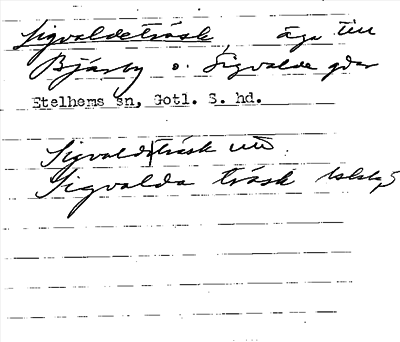 Sigvaldeträsk, äga till
Bjärby o. Sigvalde gdar
Etelhems sn, Gotl. S. hd.
Sigvaldeträsk
Sigvalda träsk